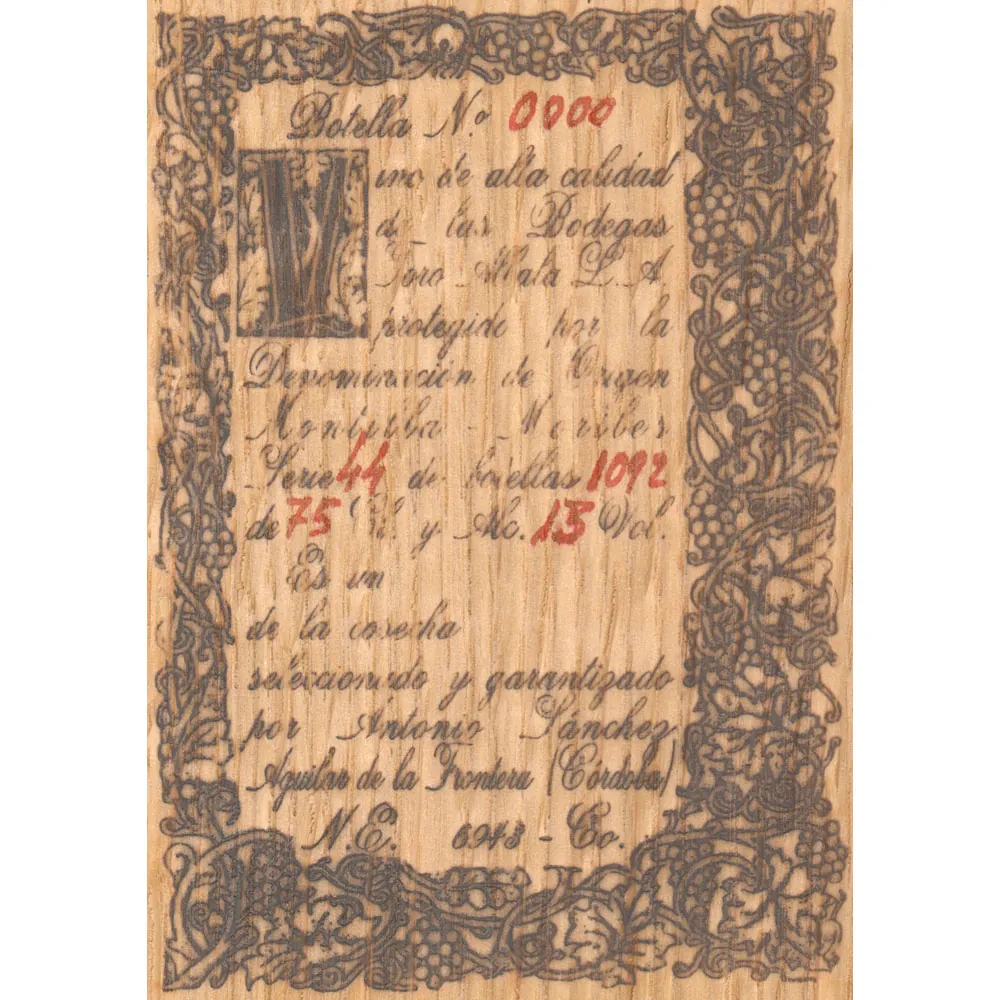 Botella N.º 0000
Vino de alta calidad
de las Bodegas
Toro Albalá L. A.
protegido por la
Denominación de Origen
Montilla - Moriles
Serie 44 de botellas 1092
de 75 Cl. y Alc. 13 Vol.
Es un
de la cosecha
seleccionado y garantizado
por Antonio Sánchez
Aguilar de la Frontera (Córdoba)
N.E. 6943 - Co.